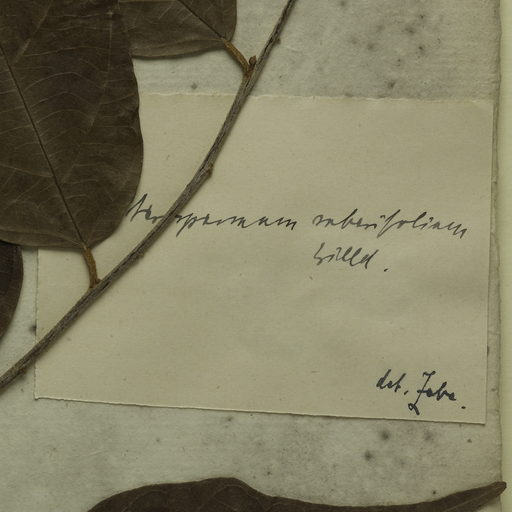 terospermum suberifolium
Willd.
det.